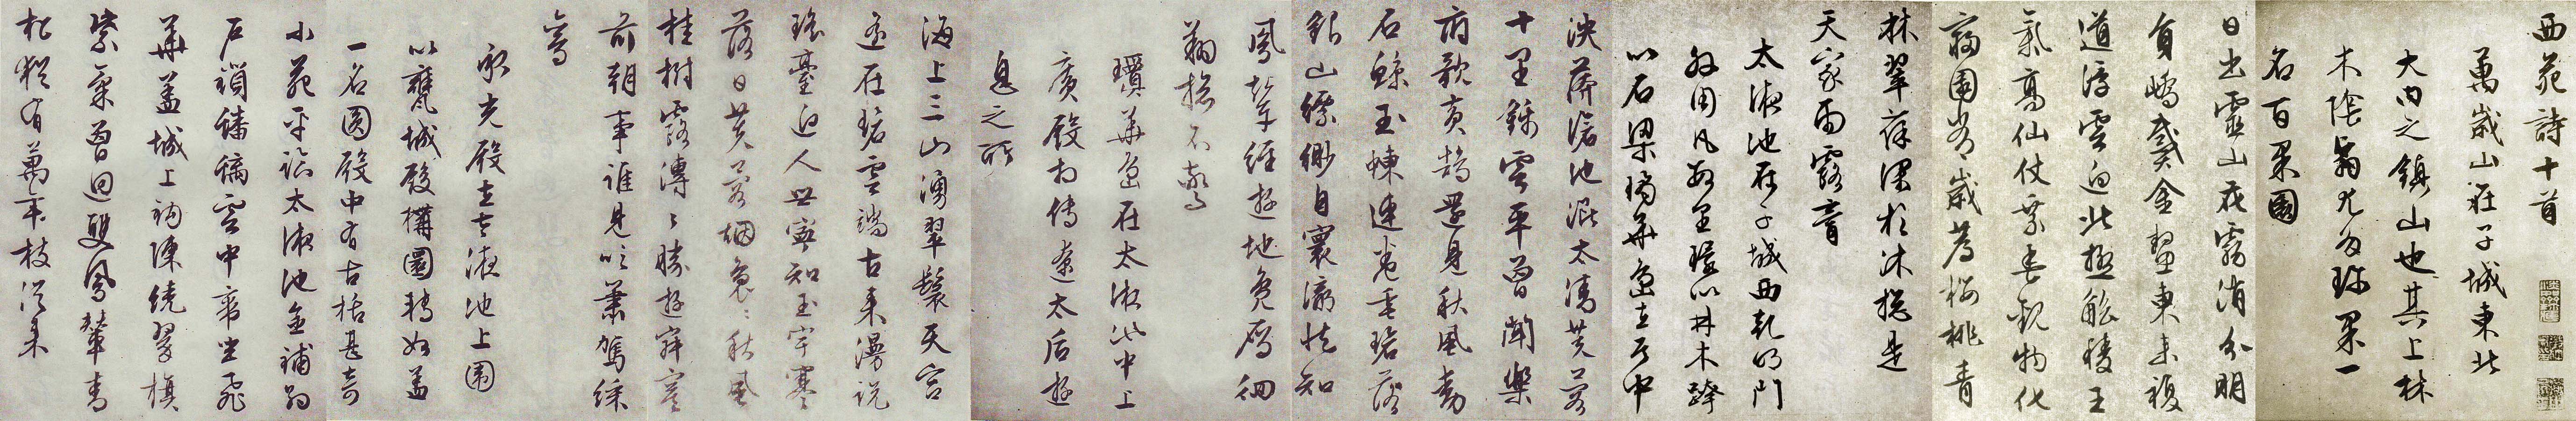 西苑詩十首
萬歲山在子城東北
大內之鎮山也其上林
木陰翳尤多珍果一
名百果園
日出靈山花霧消分明
員嶠戴金鰲東來複
道浮雲迥北極觚稜王
氣高仙仗乘春觀物化
寢園常歲薦櫻桃青
林翠葆深於沐總是
天家雨露膏
太液池在子城西乾明門
外周凡數里環以林木跨
以石梁瓊華島在其中
泱漭滄池混太清芙蓉
十里錦雲平曾聞樂
府歌黃鵠還見秋風動
石鯨玉蝀連蜷垂碧落
銀山縹緲自寰瀛從知
鳳輦經遊地鳧雁徊
翔總不驚
瓊華島在太液池中上
廣殿相傳遼太后遊
息之所
海上三山湧翠鬟天宮
遙在碧雲端古來漫說
瑤臺迥人世寧知玉宇寒
落日芙蓉煙裊裊秋風
桂樹露漙漙勝遊寂寞
前朝事誰見吹簫駕綵
鸞
承光殿在太液池上圍
以甕城殿構圜轉如蓋
一名圓殿中有古栝甚奇
小苑平臨太液池金鋪約
戶鎖蟠螭雲中帝坐飛
華蓋城上鉤陳繞翠旗
紫氣曾迴雙鳳輦青
松猶有萬年枝從來